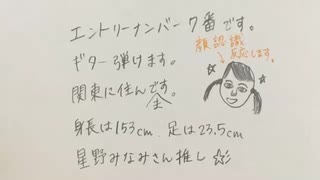 エントリーナンバー7番です。
ギター弾けます。
顔認識
反応します。
関東に住んです。
身長は153cm、足は23.5cm
星野みなみさん推し☆彡